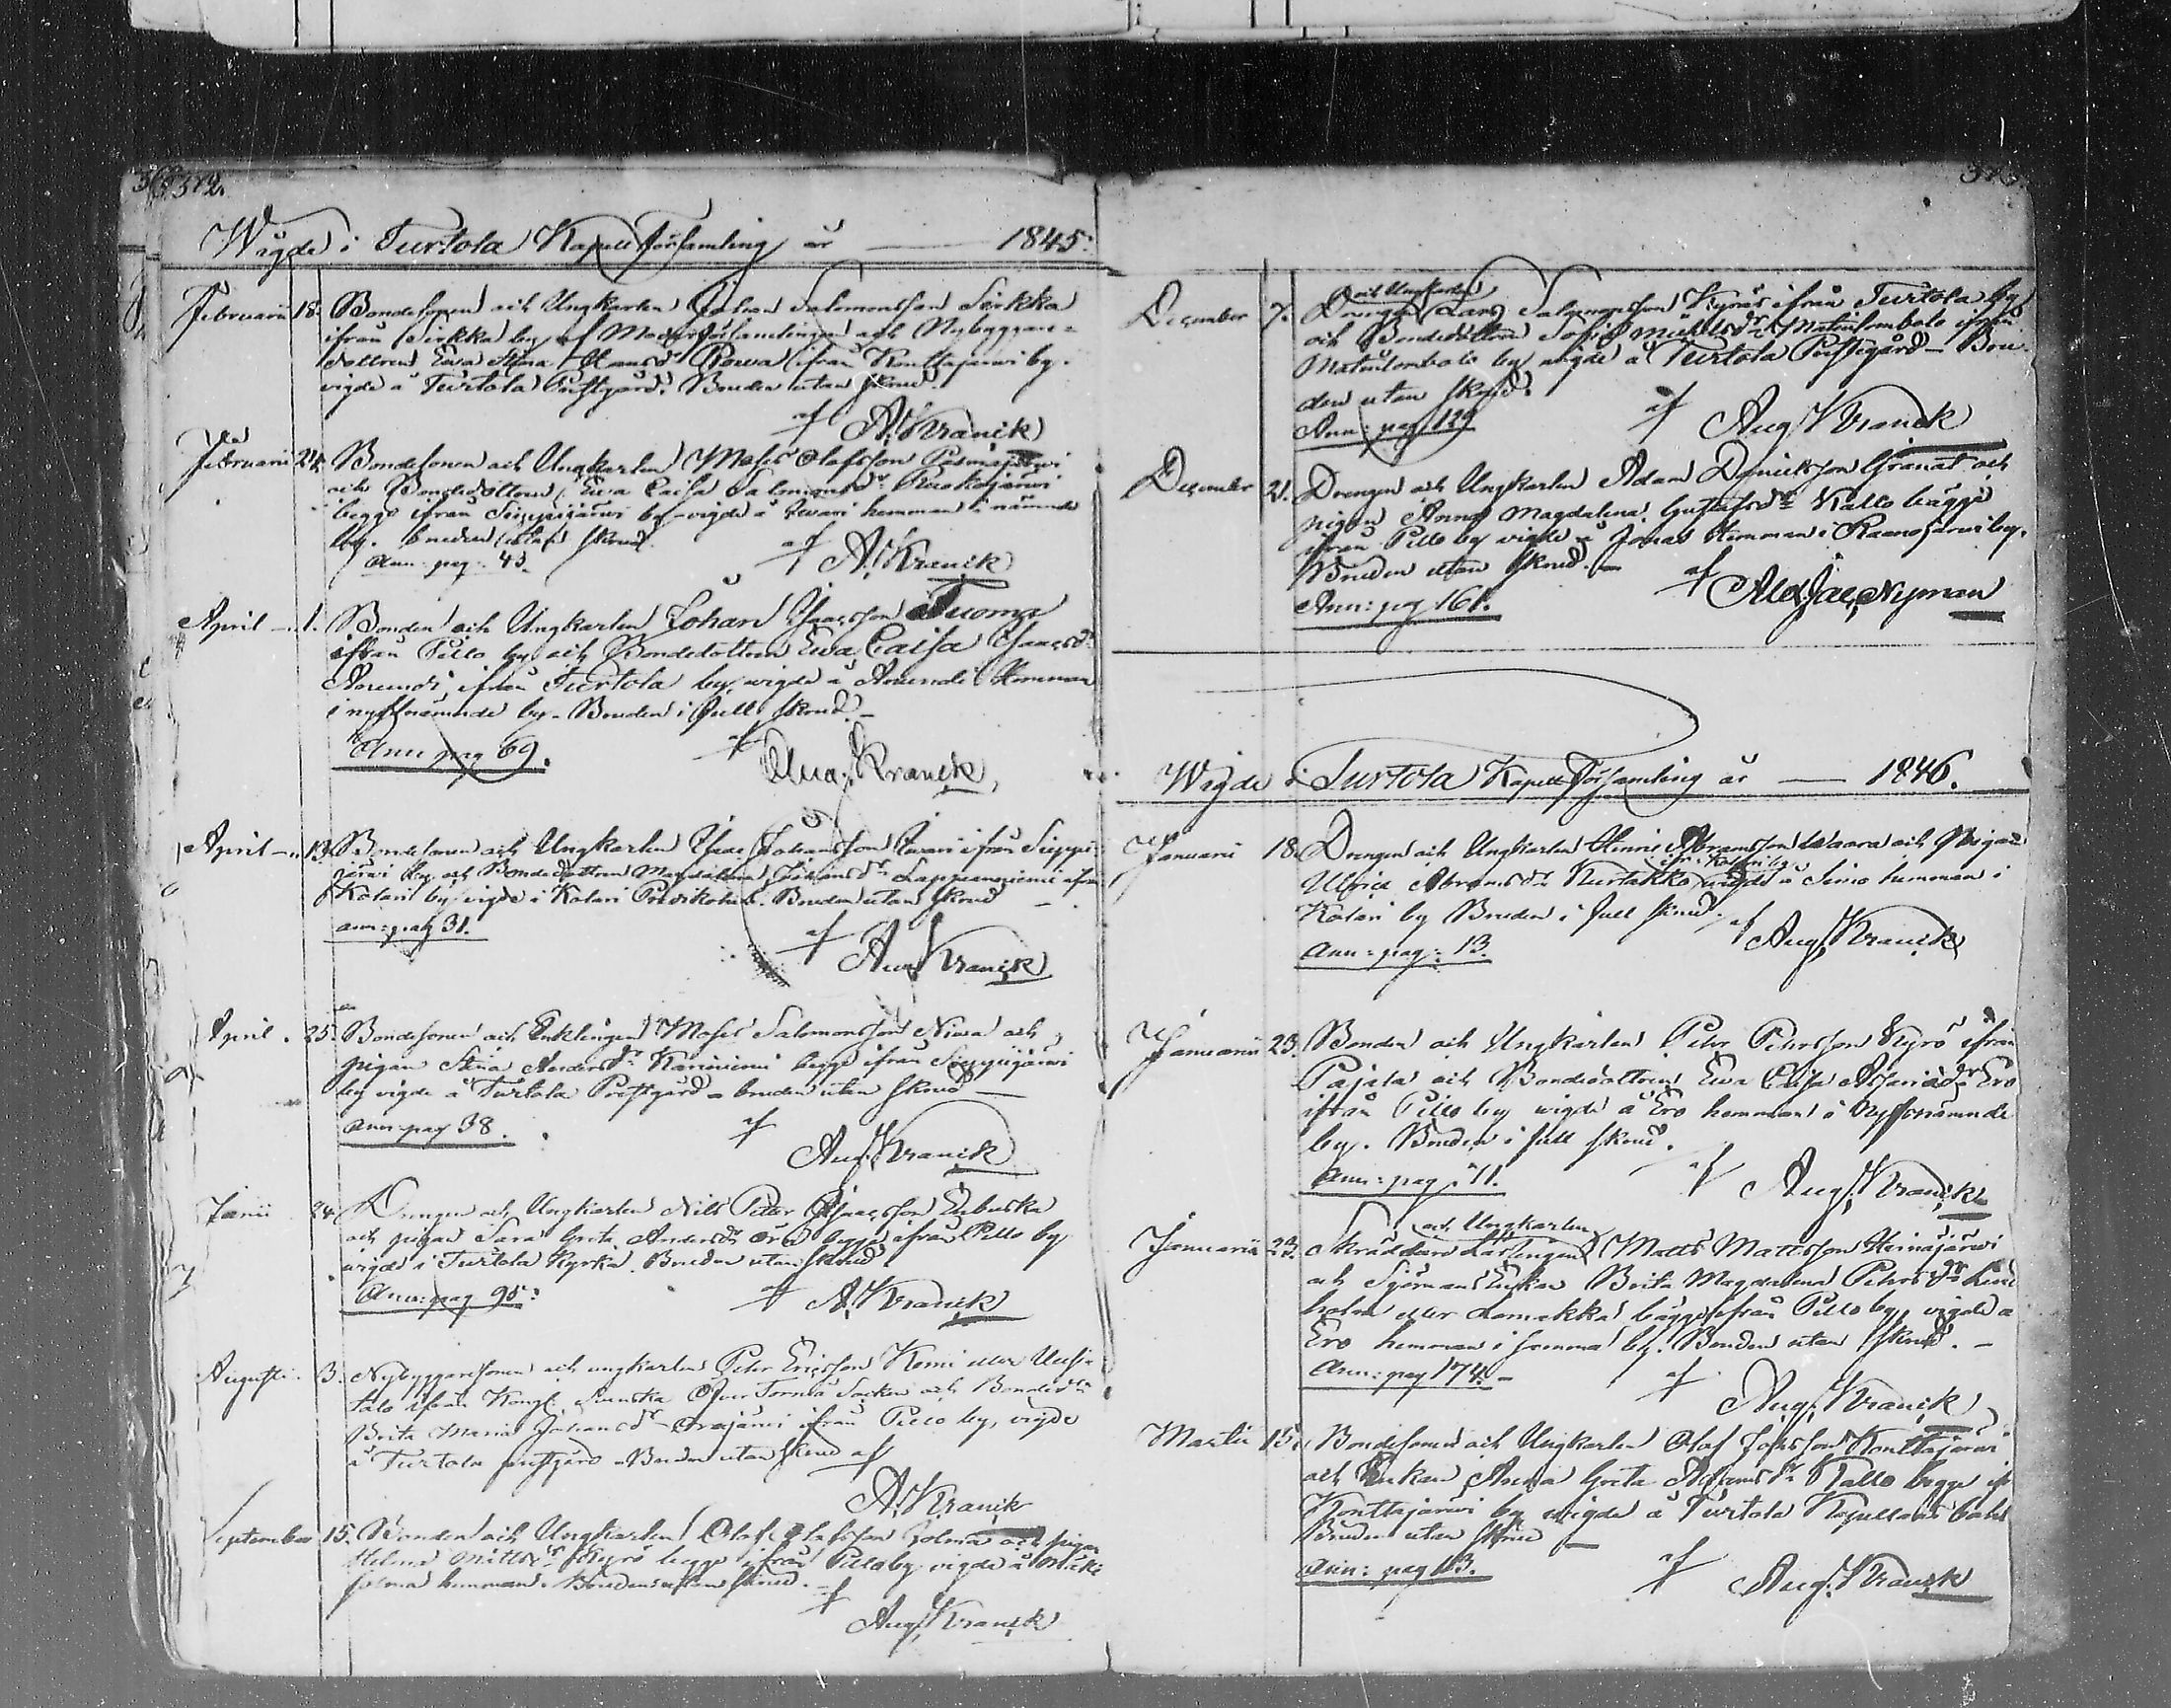 372.
Wigde i Turtola Kapell Församling år 1845.
Februarii 18. Bondesonen och Ungkarlen Johan Salomonsson Sirkka
ifrån Sirkka by af Moderförsamlingen och Nybyggare-
dottren Ewa Stina Hansdr Rowa ifrån Konttajärwi by.
vigde å Turtola Prestgård. Bruden utan skrud.
af A. Kranck
Februarii 24. Bondesonen och Ungkarlen Moses Olofsson Pasmajärwi
och Bondedottren Ewa Caisa Salomonsdr Ruokojärwi
begge ifrån Sieppijärwi by vigde å Iwari hemman i nämnde
by. bruden utan skrud.
Ann: pag: 43.
af A. Kranck
April 1. Bonden och Ungkarlen Johan Isacsson Tuoma
ifrån Pello by och Bondedottren Ewa Caisa Isacsdr
ifrån Turtola by, wigde å hemman
i nyssnämnde by. Bruden i full skrud.
Ann pag 69.
af Aug. Kranck,
April 13. Bondesonen och Ungkarlen Isac Johansson Iwari ifrån Sieppi-
järwi by och Bondedottren Magdalena Johansdr Lappeanniemi ifrån
Kolari by vigde i Kolari Predikohus. Bruden utan skrud
ann: pag 31.
af Aug Kranck
April 25. Bondesonen och Enklingen Moses Salomonsson Niwa och
pigan Stina Andersdr Kaniniemi begge ifrån Sieppijärwi
by vigde å Turtola Prestgård bruden utan skrud
ann: pag 38.
af Aug. Kranck
Junii 24. Drengen och Ungkarlen Nils Petter Isacsson
och pigan Sara Greta Andersdr begge ifrån Pello by
wigde i Turtola Kyrka. Bruden utan skrud
Ann: pag 95:
af A. Kranck
Augusti 3. Nybyggaresonen och ungkarlen Pehr Ericsson Kemi eller Uusi-
talo ifrån Kongl. Svenska Öfver Torneå Socken och Bonded:
Brita Maria Johansdr Orajärwi ifrån Pello by, vigde
å Turtola prestgård. Bruden utan skrud af
A. Kranck
September 15. Bonden och Ungkarlen Olof Olofsson Jolma och pigan
Helena Mattsdr Kyrö begge ifrån Pello by vigde å
jolma hemman. Bruden utan skrud.
af Aug. Kranck
373.
December 7. Drengen och Ungkarlen Lars Salomonsson Kyrö ifrån Turtola by
och Bondedottren Sofia Michelsdr Matinlombolo ifrån
Matinlombolo by wigde å Turtola Prestgård. Bru-
den utan skrud.
Ann: pag 129
af Aug Kranck
December 21. Drengen och Ungkarlen Adam Granat och
pigan Anna Magdalena Gustafsdr Kallo bägge
ifrån Pello by vigde å Jonas Hemman i Raanojärwi by.
Bruden utan skrud.
Ann: pag 161.
af Alex Jac. Nyman
Wigde i Turtola Kapell Församling år 1846.
Januarii 18. Drengen och Ungkarlen Hinric Abramsson Waara och Pigan
Ulrica Abramsdr Kurtakko ifr: Kolari by wigde å Simo hemman i
Kolari by Bruden i full skrud.
Ann: pag: 13.
af Aug. Kranck
Januarii 23. Bonden och Ungkarlen Pehr Pehrsson Kyrö ifrån
Pajala och Bondedottren Ewa Caisa Ero
ifrån Pello by wigde å Ero hemman i nyssnämnde
by. Bruden i full skrud.
Ann: pag: 71.
af Aug. Kranck
Januarii 23. Skräddare Lärlingen och Ungkarlen Matts Mattsson Heinäjärwi
och Sjömans Enkan Brita Magdalena Pehrsdr
holm eller Lamakka bägge ifrån Pello by, vigde å
Ero hemman i samma by. Bruden utan skrud.
Ann: pag 174.
af Aug. Kranck
Martii 15. Bondesonen och Ungkarlen Olof Johsson Konttajärwi
och Enkan Anna Greta Adamsdr Kallo begge ifr
Konttajärwi by wigde å Turtola Kapellans bohl
Bruden utan skrud
Ann: pag 13.
af Aug. Kranck